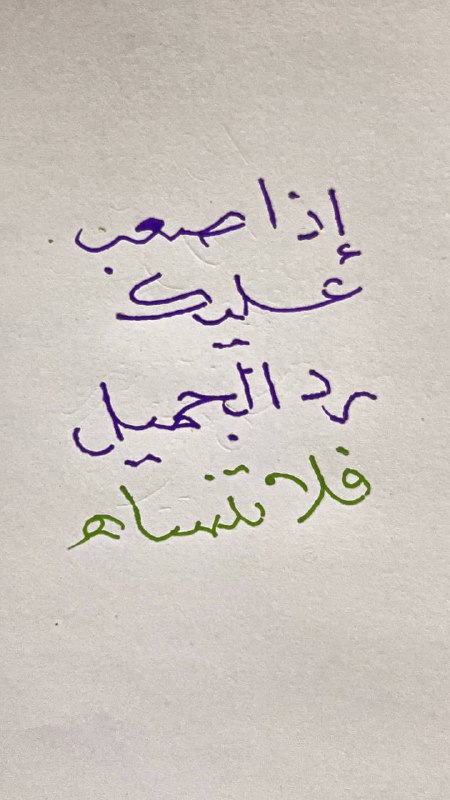 إذا صعب
عليك
رد الجميل
فلا تنساه